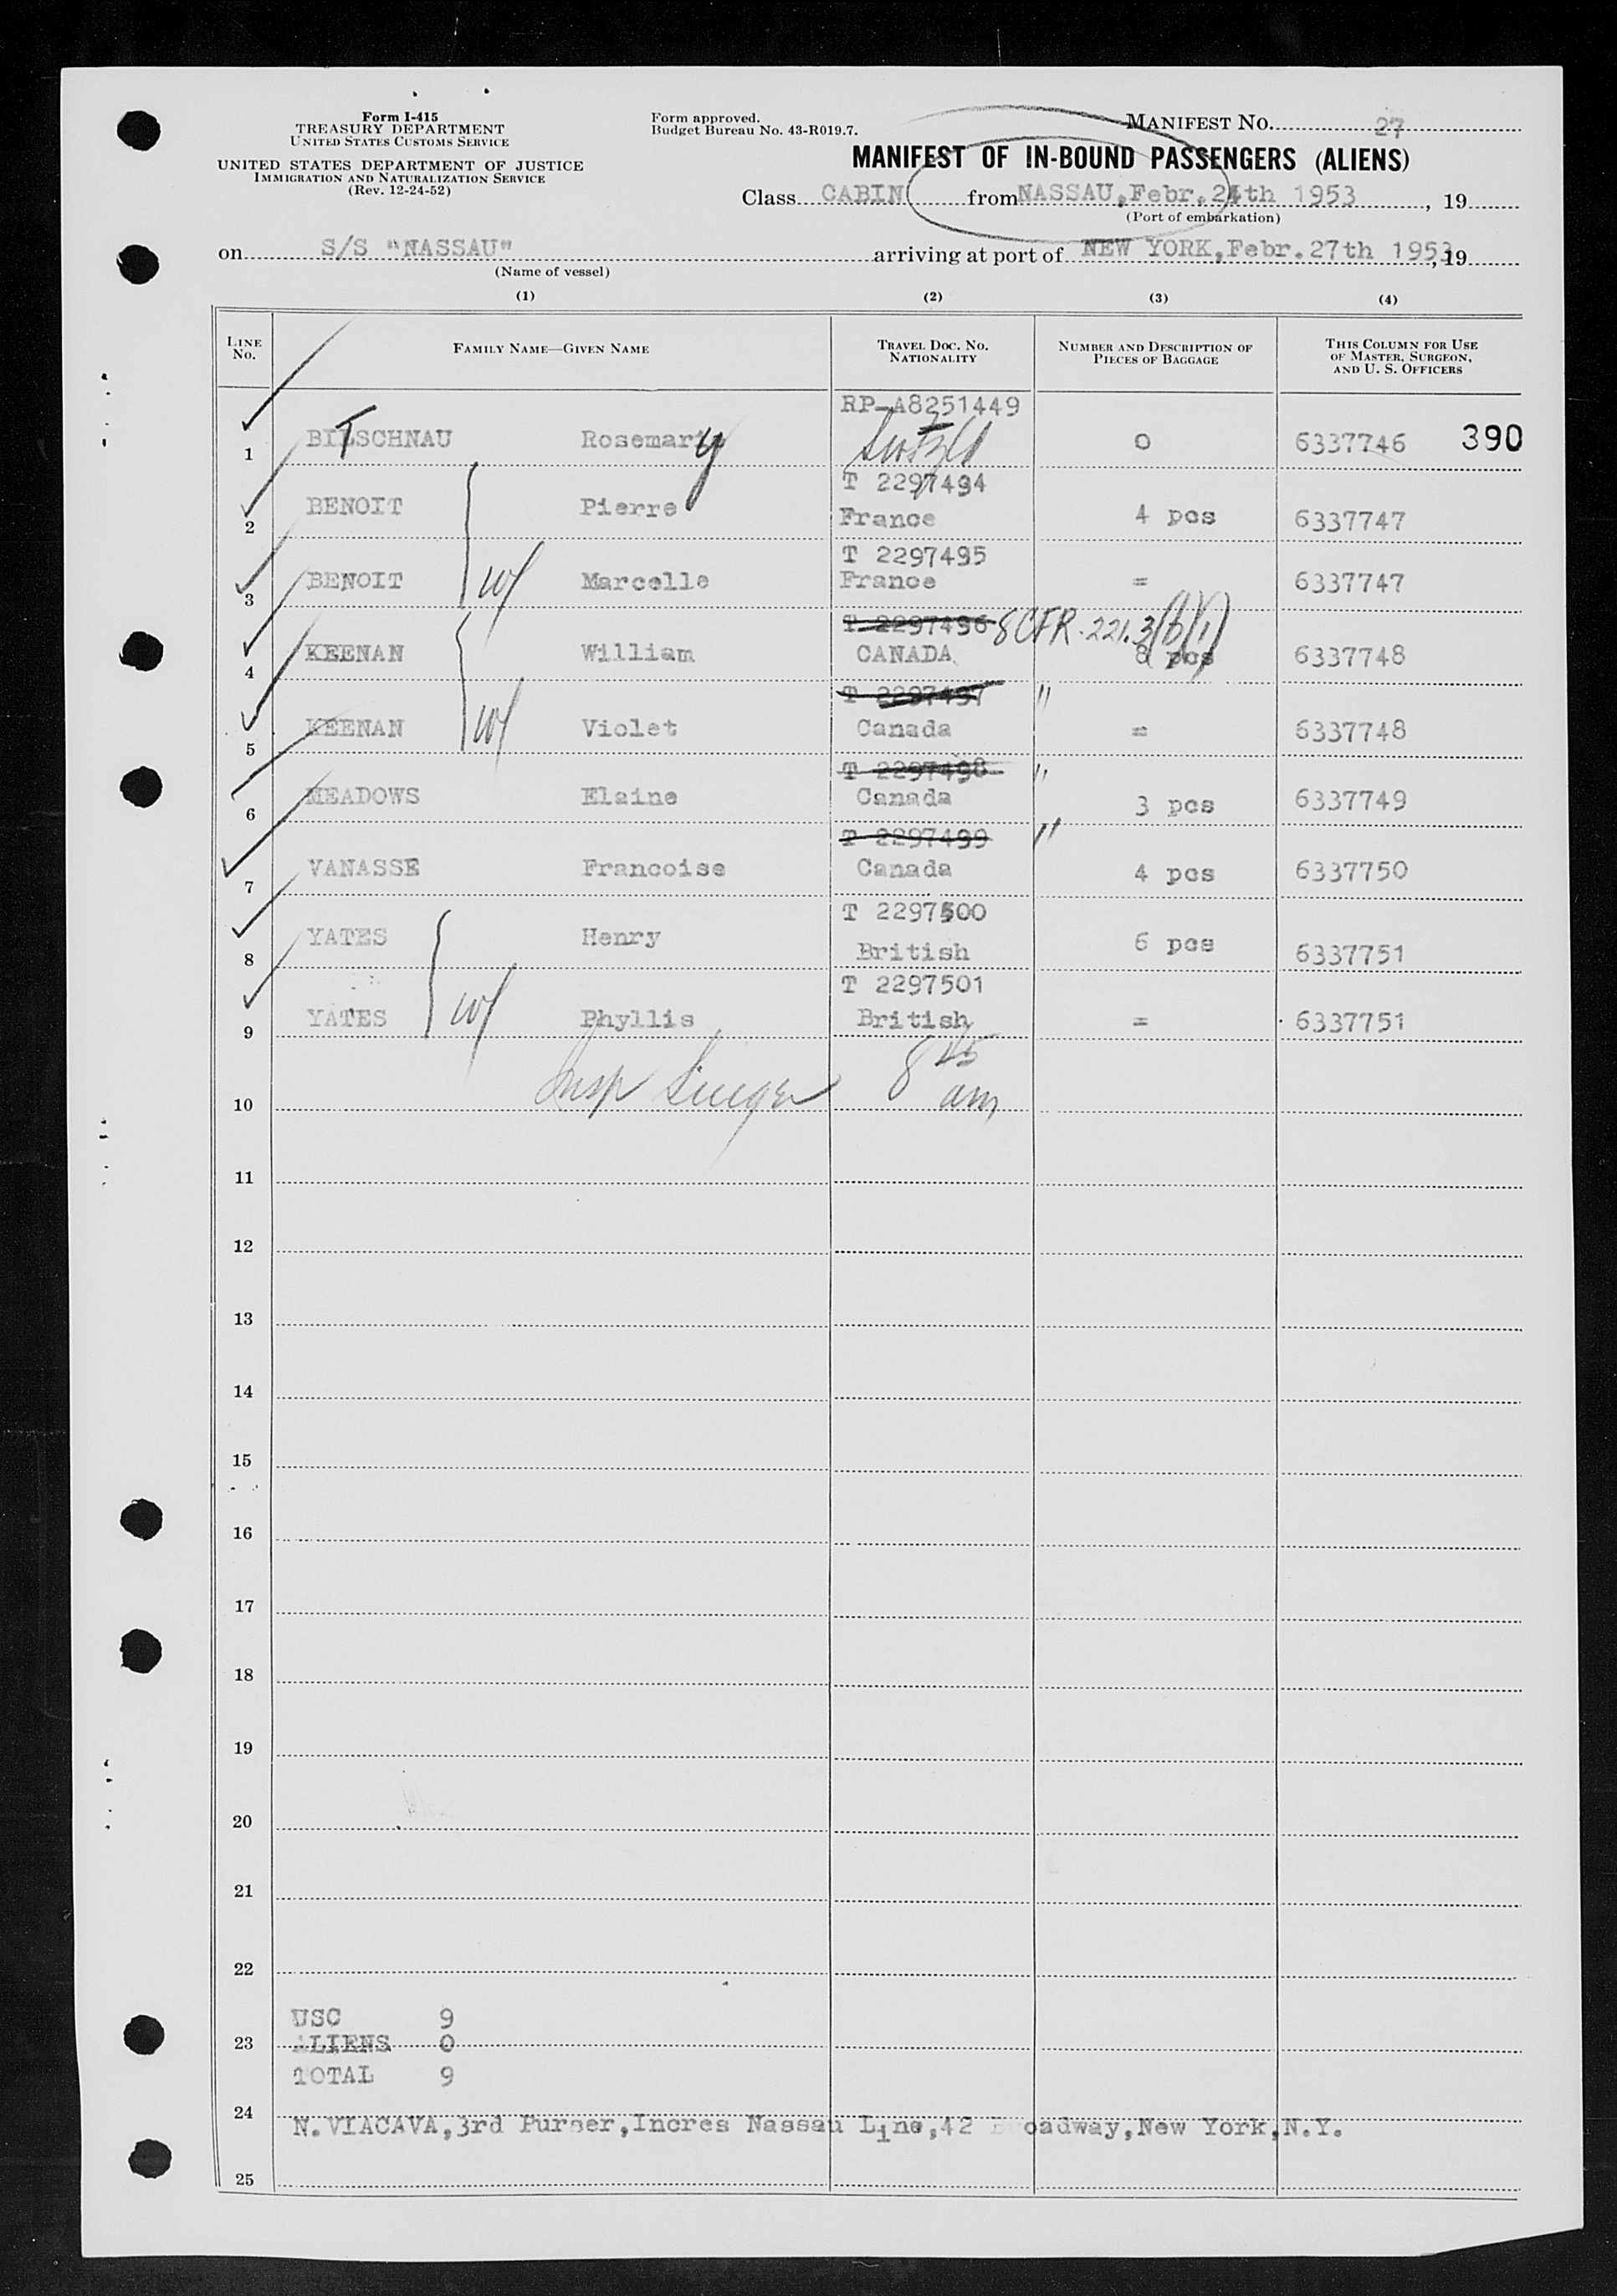 Form I-415
TREASURY DEPARTMENT
UNITED STATES CUSTOMS SERVICE
UNITED STATES DEPARTMENT OF JUSTICE
IMMIGRATION AND NATURALIZATION SERVICE
(Rev. 12-24-52)
Form approved.
Budget Bureau No. 43-R019.7.
MANIFEST NO. 27
MANIFEST OF IN-BOUND PASSENGERS (ALIENS)
Class CABIN from NASSAU, Febr. 24th 1953, 19
(Port of embarkation)
on S/S "NASSAU" arriving at port of NEW YORK, Febr. 27th 1953, 19
(Name of vessel)
(1) (2) (3) (4)
LINE NO. FAMILY NAME—GIVEN NAME TRAVEL DOC. NO. NATIONALITY NUMBER AND DESCRIPTION OF PIECES OF BAGGAGE THIS COLUMN FOR USE OF MASTER, SURGEON, AND U. S. OFFICERS
RP-A8251449
1 BITSCHNAU Rosemary 0 6337746 390
T 2297494
2 BENOIT Pierre France 4 pcs 6337747
T 2297495
3 BENOIT W/ Marcelle France = 6337747
T 2297496 8 CFR. 221.3(b)(1)
4 KEENAN William CANADA 8 pcs 6337748
T 2297497 "
5 KEENAN W/ Violet Canada = 6337748
T 2297498 "
6 MEADOWS Elaine Canada 3 pcs 6337749
T 2297499 "
7 VANASSE Francoise Canada 4 pcs 6337750
T 2297500
8 YATES Henry British 6 pcs 6337751
T 2297501
9 YATES W/ Phyllis British = 6337751
10 Insp 8 45 am
11
12
13
14
15
16
17
18
19
20
21
22
USC 9
23 ALIENS 0
TOTAL 9
24
N. VIACAVA, 3rd Purser, Incres Nassau Line, 42 Broadway, New York, N.Y.
25